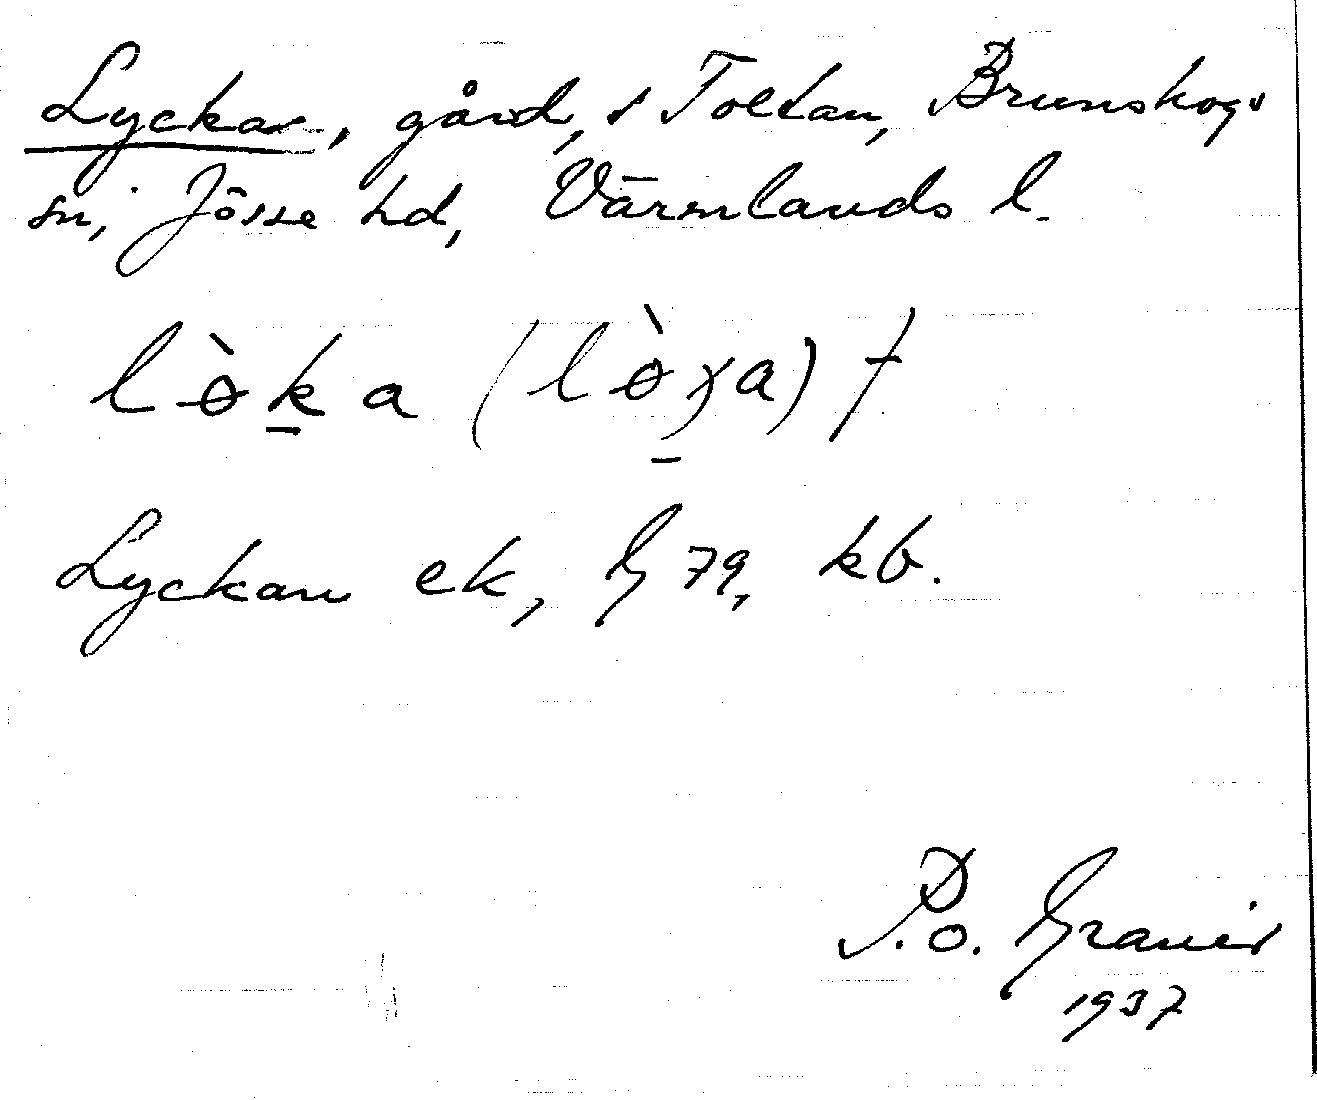 Lycka, gård, s Toltan, Brunskogs
sn, Jösse hd, Värmlands l.
lɵ̀ḵa (lɵ̀χa) f
Lyckan ek, G 79, kb.
P.O. Graner
1937